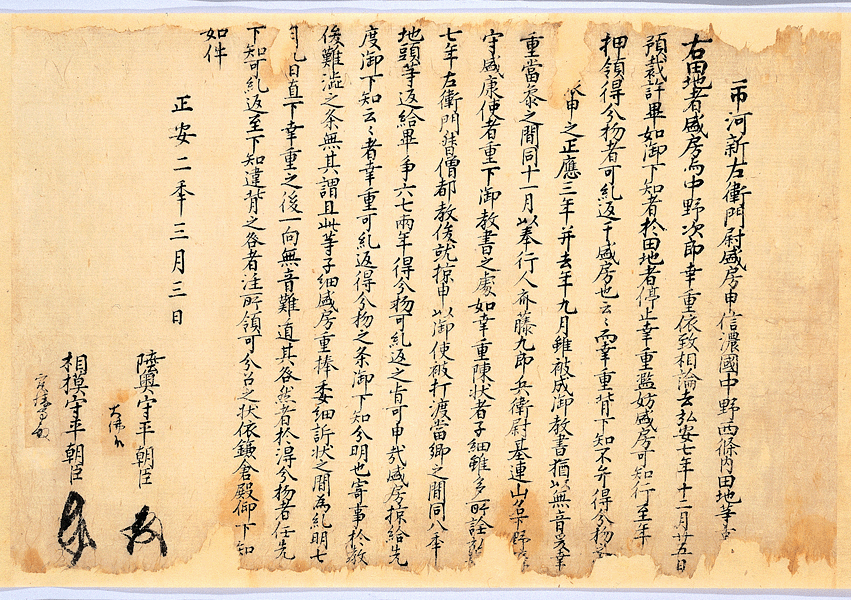 市河新左衛門尉盛房申信濃國中野西條内田地等事
右田地者盛房与中野次郎幸重依致相論去弘安七年十二月廿五日
預裁許畢如御下知者於田地者停止幸重濫妨盛房可知行至年
押領得分物者可糺返于盛房也云々而幸重背下知不弁得分物
申之正應三年并去年九月雖被成御教書猶以無音爰幸
重當参之間同十一月以奉行人斉藤九郎兵衛尉基連山名下野
守盛康使者重下御教書之處如幸重陳状者子細雖多所詮弘
七年左衛門督僧都教俊就掠申以御使被打渡當郷之間同八年
地頭等返給畢争六七兩年得分物可糺返之旨可申哉盛房掠給先
度御下知云々者幸重可糺返得分物之条御下知分明也寄事於教
俊難澁之条無其謂且此等子細盛房重捧委細訴状之間為糺明七
月九日直下幸重之後一向無音難遁其咎然者於得分物者任先
下知可糺返至下知違背之咎者注所領可分召之状依鎌倉殿仰下知
如件
正安二年三月三日
陸奥守平朝臣
相模守平朝臣